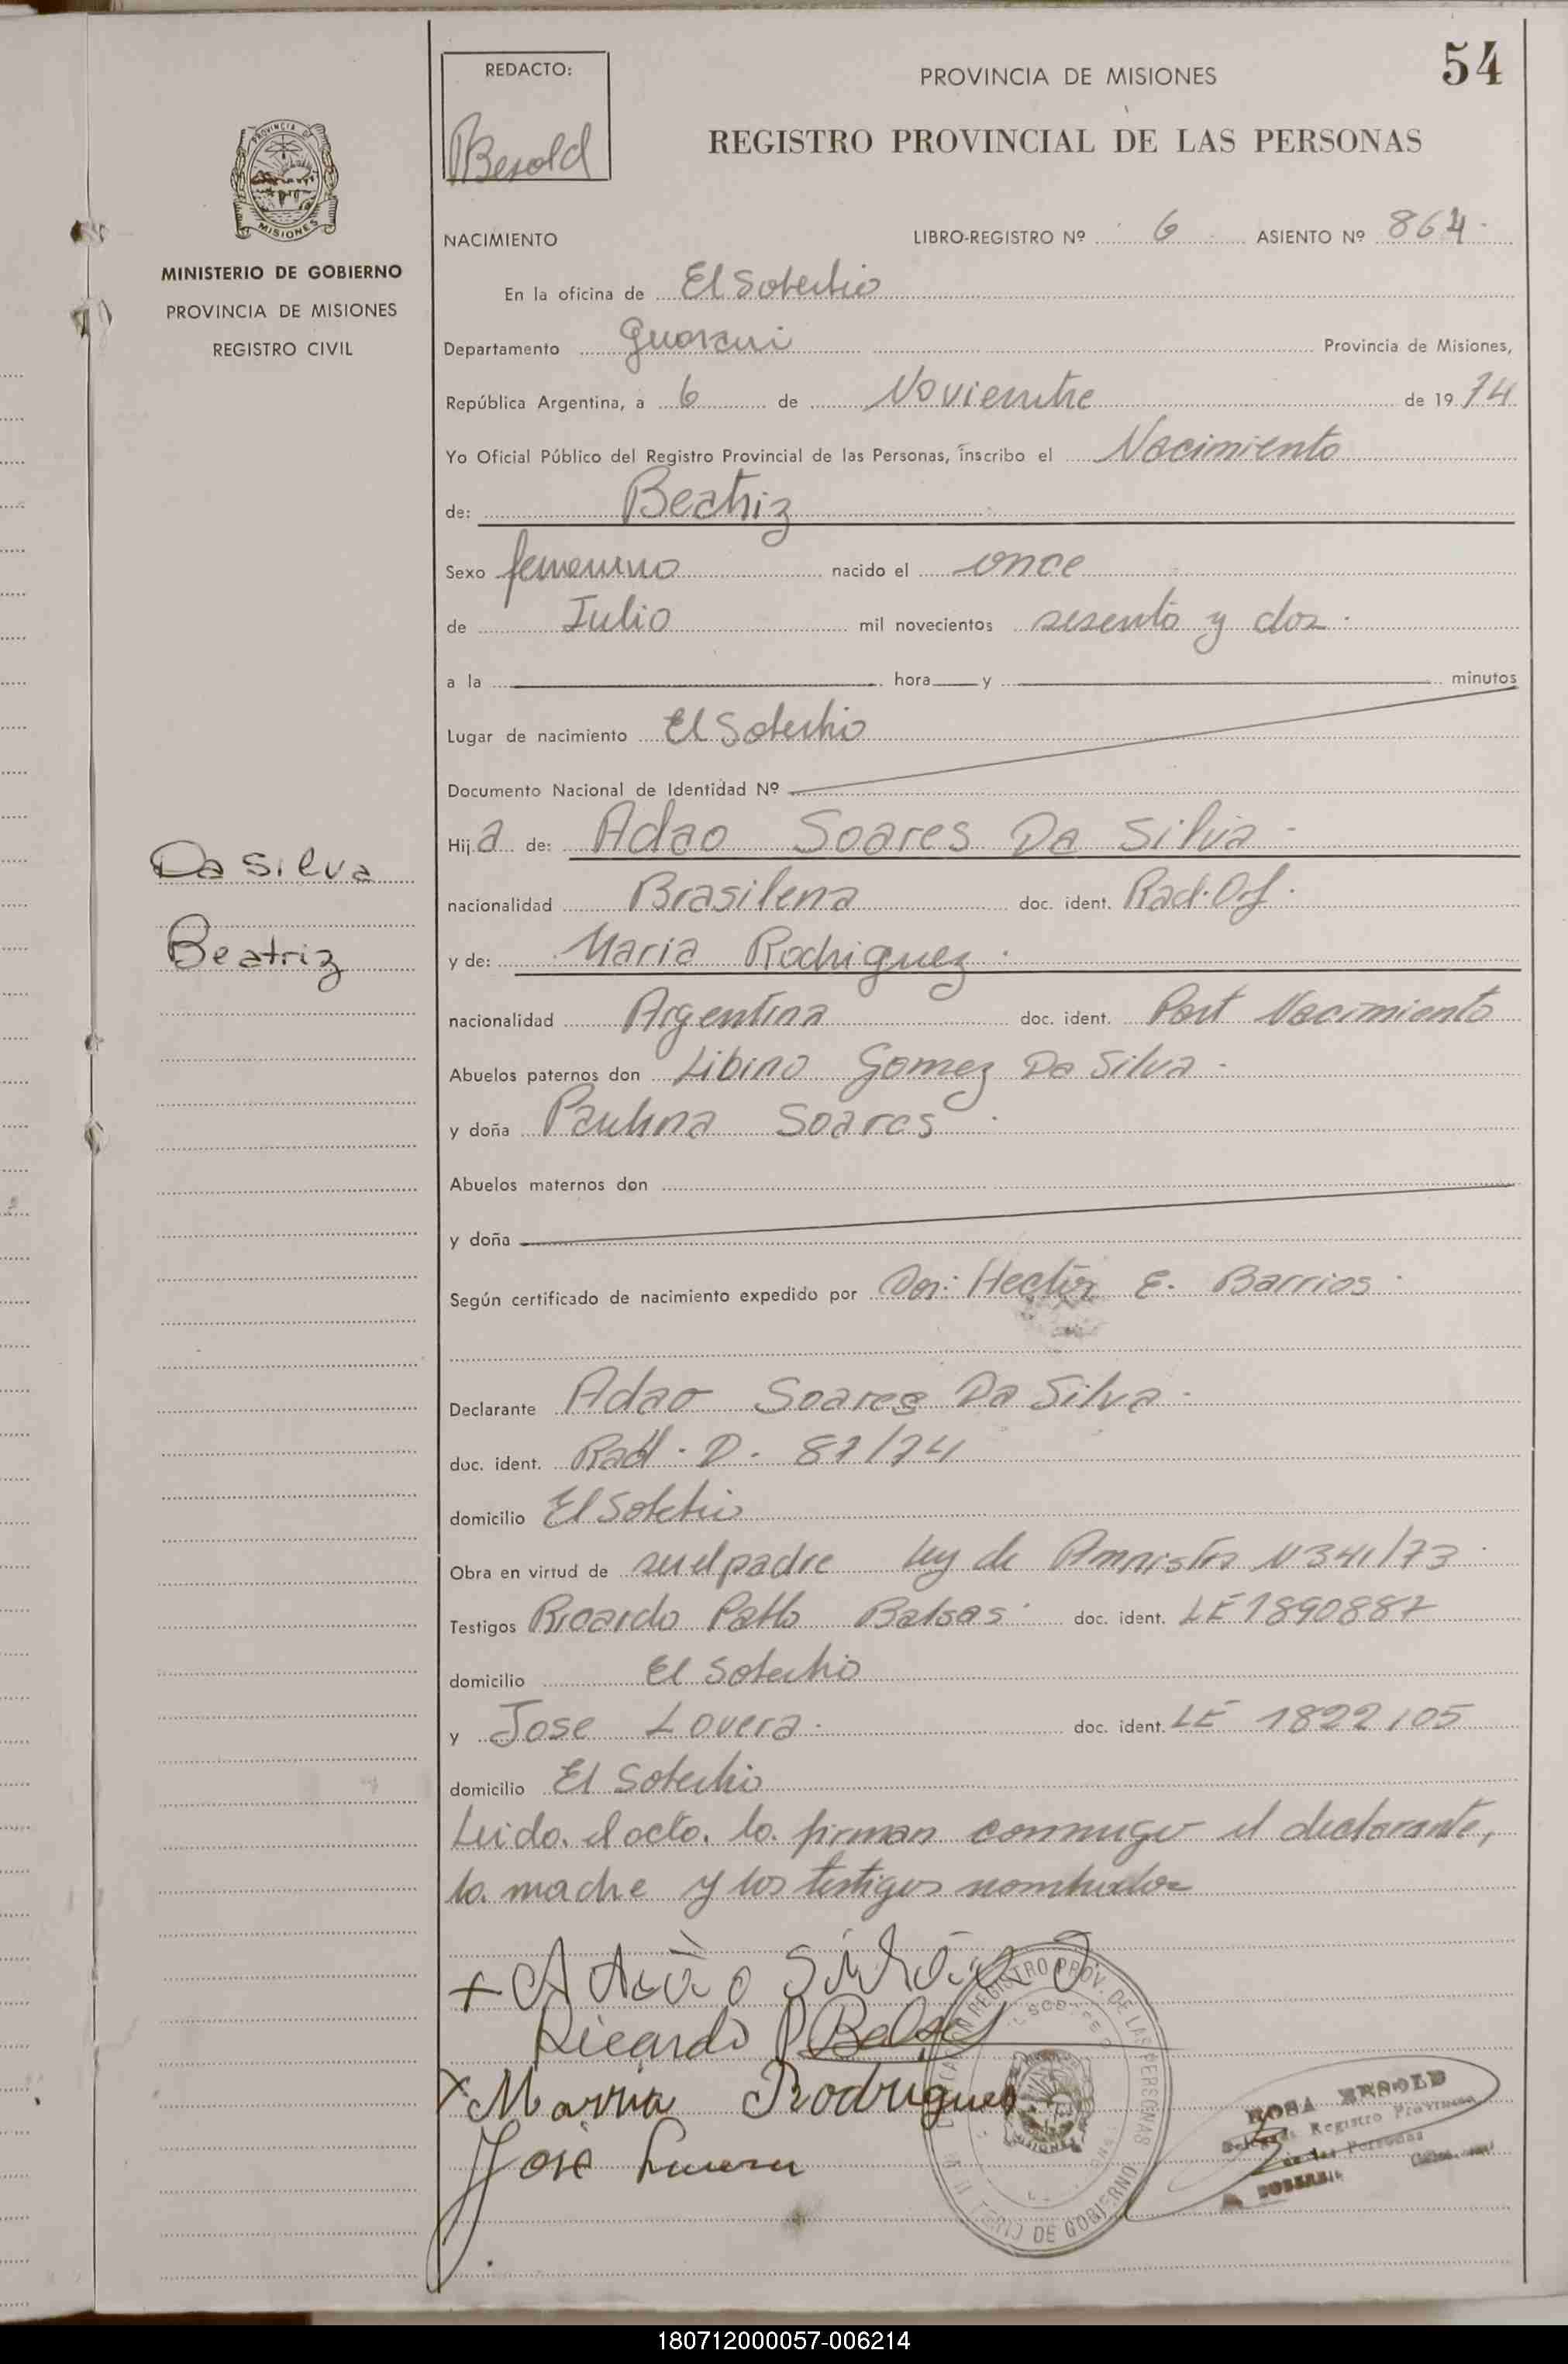 54
REDACTO:
Besold
PROVINCIA DE MISIONES
REGISTRO PROVINCIAL DE LAS PERSONAS
PROVINCIA DE
MISIONES
MINISTERIO DE GOBIERNO
PROVINCIA DE MISIONES
REGISTRO CIVIL
NACIMIENTO LIBRO-REGISTRO Nº 6 ASIENTO Nº 864
En la oficina de El Soberbio
Departamento Guarani Provincia de Misiones,
República Argentina, a 6 de Noviembre de 19 74
Yo Oficial Público del Registro Provincial de las Personas, inscribo el Nacimiento
de: Beatriz
Sexo femenino nacido el once
de Julio mil novecientos sesenta y dos
a la hora y minutos
Lugar de nacimiento El Soberbio
Documento Nacional de Identidad Nº
Hij a de: Adao Soares Da Silva
nacionalidad Brasilena doc. ident. Rad. Of.
y de: Maria Rodriguez
nacionalidad Argentina doc. ident. Part Nacimiento
Abuelos paternos don Libino Gomez Da Silva
y doña Paulina Soares
Abuelos maternos don
y doña
Según certificado de nacimiento expedido por Hector E. Barrios
Declarante Adao Soares Da Silva
doc. ident. Rad. D. 87/74
domicilio El Soberbio
Obra en virtud de ser el padre Ley de Amnistia N 341/73
Testigos Ricardo Pablo Balsas doc. ident. LE 1890887
domicilio El Soberbio
y Jose Lovera doc. ident. LE 1822105
domicilio El Soberbio
Leido el acta, la firman conmigo el declarante,
la madre y los testigos nombrados
Da Silva
Beatriz
Ricardo P Balsas
x Marria Rodrigues
José Lovera
REGISTRO PROV. DE LAS PERSONAS
DE GOBIERNO
ROSA BESOLD
Registro Provincial
de las Personas
180712000057-006214